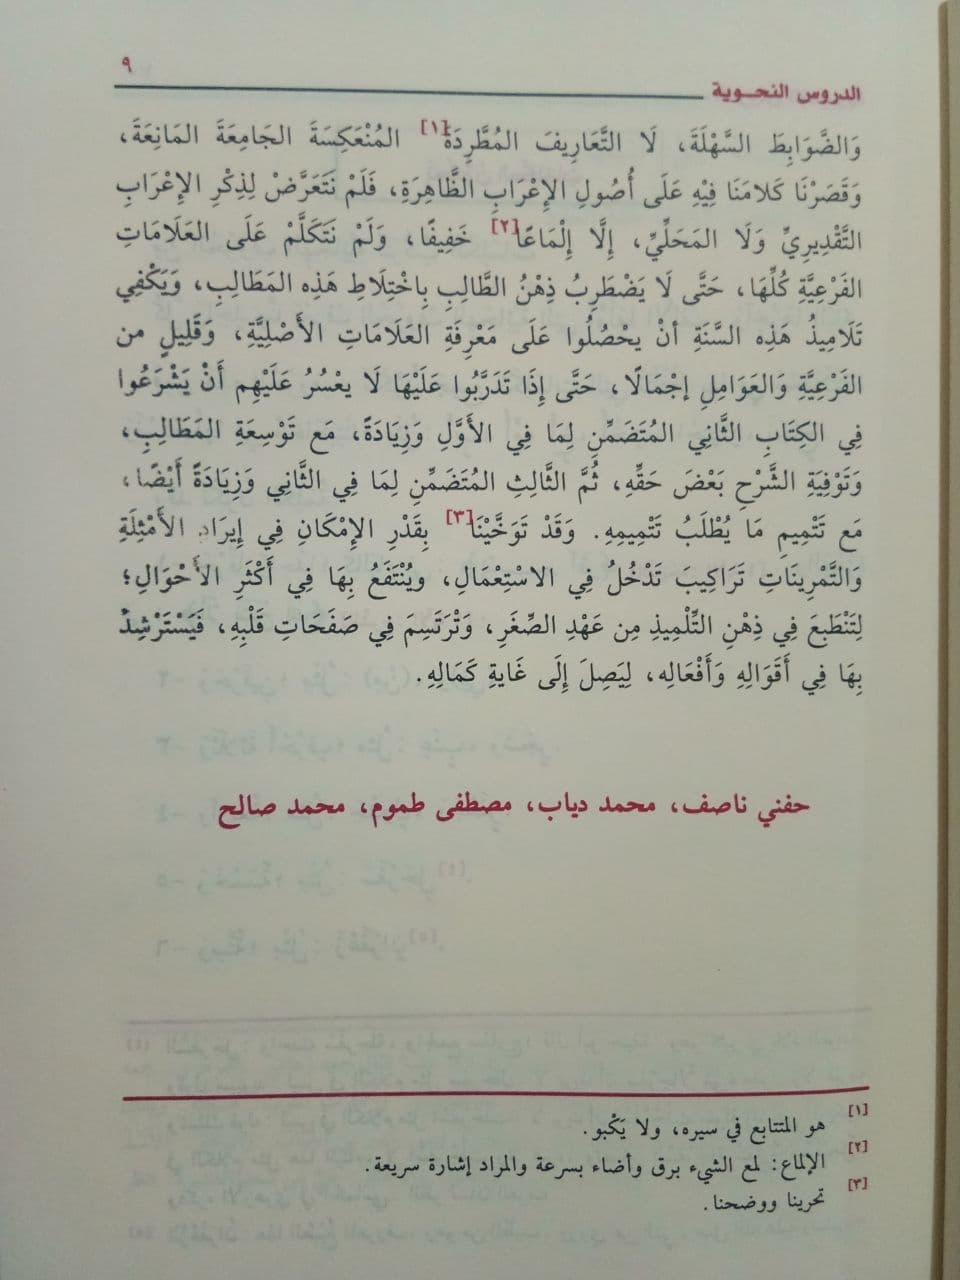 الدروس النحوية
٩
وَالضَّوَابِطَ السَّهْلَةَ، لَا التَّعَارِيفَ المُطَّرِدَةَ[١] المُنْعَكِسَةَ الجَامِعَةَ المَانِعَةَ،
وَقَصَرْنَا كَلَامَنَا فِيْهِ عَلَى أُصُولِ الإِعْرَابِ الظَّاهِرَةِ، فَلَمْ نَتَعَرَّضْ لِذِكْرِ الإِعْرَابِ
التَّقْدِيرِيِّ وَلَا المَحَلِّيِّ، إِلَّا إِلْمَاعًا[٢] خَفِيفًا، وَلَمْ نَتَكَلَّمْ عَلَى العَلَامَاتِ
الفَرْعِيَّةِ كُلِّهَا، حَتَّى لَا يَضْطَرِبُ ذِهْنُ الطَّالِبِ بِاخْتِلَاطِ هَذِهِ المَطَالِبِ، وَيَكْفِي
تَلَامِيذُ هَذِهِ السَّنَةِ أنْ يحْصُلُوا عَلَى مَعْرِفَةِ العَلَامَاتِ الأَصْلِيَّةِ، وَقَلِيلٍ من
الفَرْعِيَّةِ وَالعَوَامِلِ إجْمَالًا، حَتَّى إِذَا تَدَرَّبُوا عَلَيْهَا لَا يعْسُرُ عَلَيْهِم أَنْ يَشْرَعُوا
فِي الكِتَابِ الثَّانِي المُتَضَمِّنِ لِمَا فِي الأَوَّلِ وَزِيَادَةً، مَع تَوْسِعَةِ المَطَالِبِ،
وَتَوْفِيَةِ الشَّرْحِ بَعْضَ حَقِّهِ، ثُمَّ الثَّالِثِ المُتَضَمِّنِ لِمَا فِي الثَّانِي وَزِيَادَةً أَيْضًا،
مَع تَتْمِيمِ مَا يُطْلَبُ تَتْمِيمِهِ. وَقَدْ تَوَخَّيْنَا[٣] بِقَدْرِ الإِمْكَانِ فِي إِيرَادِ الأَمْثِلَةِ
وَالتَّمْرِينَاتِ تَرَاكِيبَ تَدْخُلُ فِي الاسْتِعْمَالِ، ويُنْتَفَعُ بِهَا فِي أَكْثَرِ الأَحْوَالِ؛
لِتَنْطَبِعَ فِي ذِهْنِ التِّلْمِيذِ مِن عَهْدِ الصِّغَرِ، وَتَرْتَسِمَ فِي صَفَحَاتِ قَلْبِهِ، فَيَسْتَرْشِدُ
بِهَا فِي أَقَوَالِهِ وَأَفْعَالِه، لِيَصِلَ إِلَى غَايةِ كَمَالِهِ.
حفني ناصف، محمد دياب، مصطفى طموم، محمد صالح
[١] هو المتتابع في سيره، ولا يَكْبو.
[٢] الإلماع: لمع الشيء برق وأضاء بسرعة والمراد إشارة سريعة.
[٣] تحرينا ووضحنا.